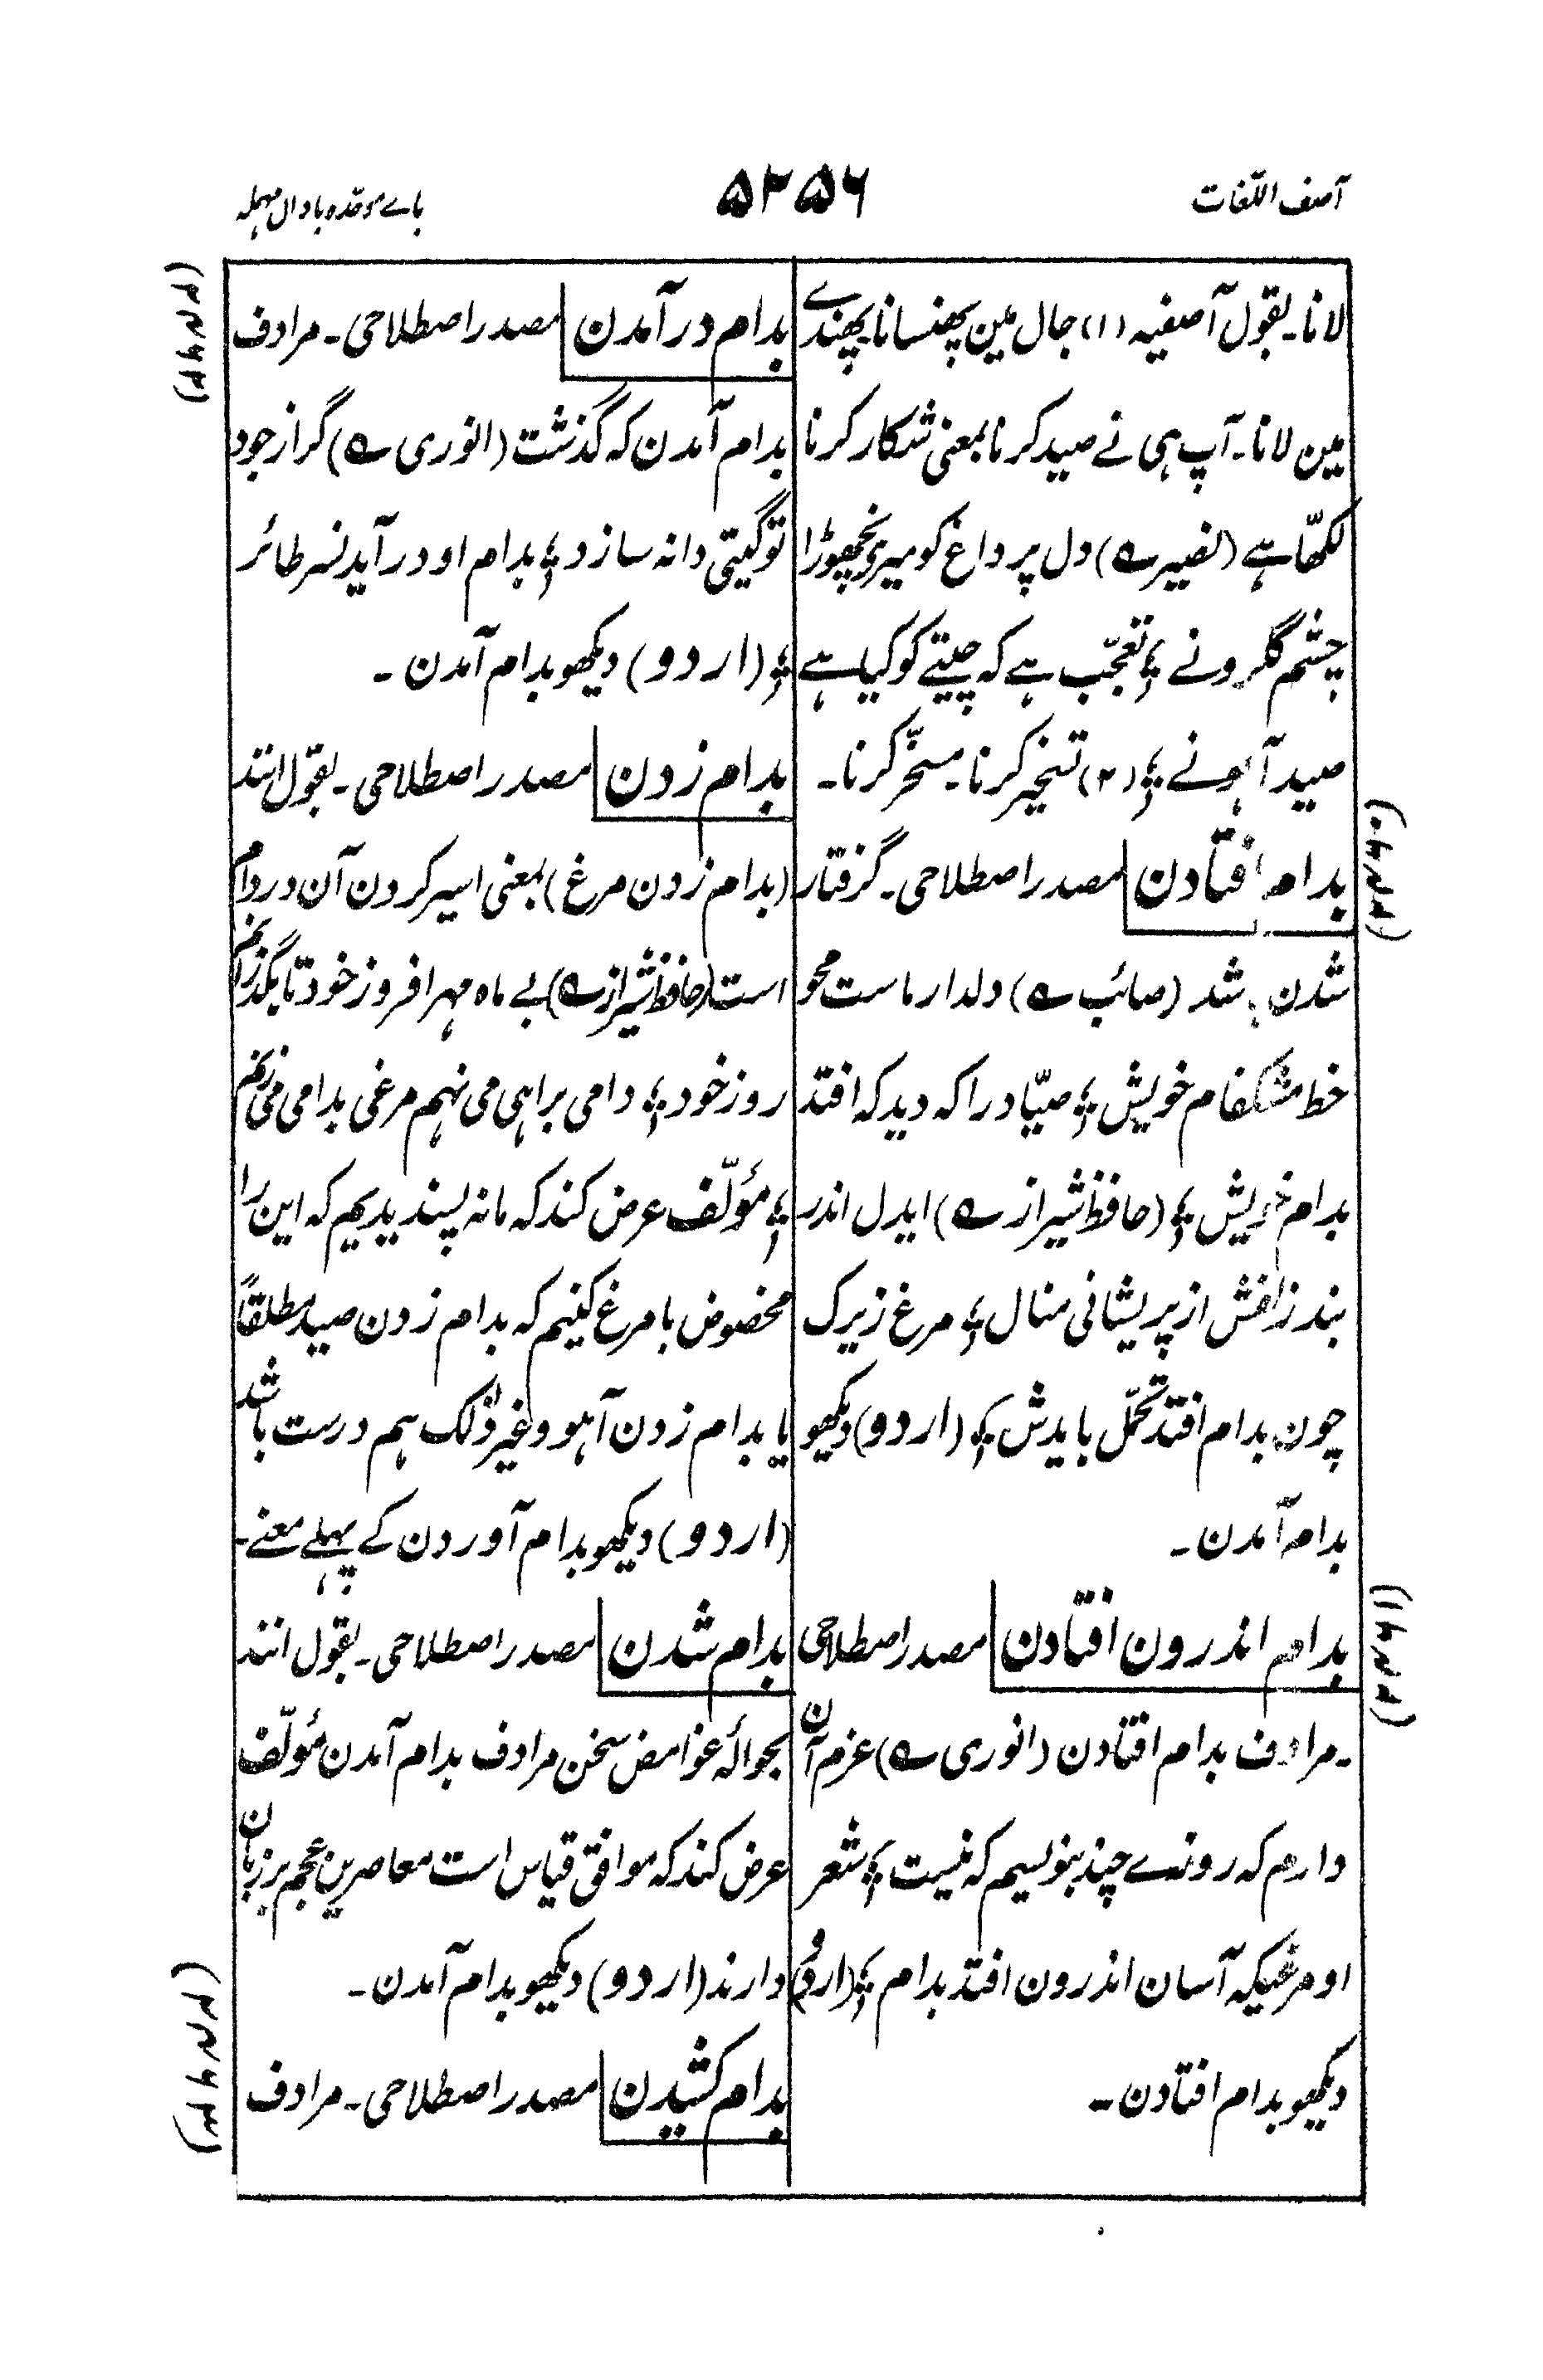 آصف اللّغات
۵۲۵۶
باے موحّدہ با دال مہملہ
لانا۔ بقول آصفیہ (۱) جال مین پھنسانا پھندے
مین لانا۔ آپ ہی نے صید کرنا بمعنی شکار کرنا
لکھّا ہے (نصیر ے) دل پر داغ کو میرے نچھوڑا
چشم گلرو نے ؛ تعجّب ہے کہ چیتے کو کیا ہے
صید آہو نے ؛ (۲) تسخیر کرنا۔ مسخّر کرنا۔
بدام افتادن مصدر اصطلاحی۔ گرفتار
شدن شد (صائب ے) دلدار ماست محو
خط مشکفام خویش ؛ صیّاد را کہ دید کہ افتد
بدام خویش ؛ (حافظ شیراز ے) ایدل اندر
بند زلفش از پریشانی منال ؛ مرغ زیرک
چون بدام افتد تحمّل بایدش ؛ (اردو) دیکھو
بدام آمدن۔
بدام اندرون افتادن مصدر اصطلاحی
۔ مرادف بدام افتادن (انوری ے) عزم آن
دارم کہ روندے چند بنویسم کہ نیست ؛ شعر
او مرغیکہ آسان اندرون افتد بدام ؛ (اردو)
دیکھو بدام افتادن۔
بدام در آمدن مصدر اصطلاحی۔ مرادف
بدام آمدن کہ گذشت (انوری ے) گر از جود
تو گیتی دانہ سازد ؛ بدام او در آید نسر طائر
؛ (اردو) دیکھو بدام آمدن۔
بدام زدن مصدر اصطلاحی۔ بقول انند
(بدام زدن مرغ) بمعنی اسیر کردن آن در دام
است (حافظ شیراز ے) بے ماہ مہر افروز خود تا بگذرانم
روز خود ؛ دامی براہی می نہم مرغی بدامی می زنم
؛ مؤلّف عرض کند کہ ما نہ پسندیدیم کہ این را
مخصوص با مرغ کنیم کہ بدام زدن صید مطلقاً
یا بدام زدن آہو و غیر ذلک ہم درست باشد
(اردو) دیکھو بدام آوردن کے پہلے معنے۔
بدام شدن مصدر اصطلاحی۔ بقول انند
بحوالۂ غوامض سخن مرادف بدام آمدن مؤلّف
عرض کند کہ موافق قیاس است معاصرین عجم بر زبان
دارند (اردو) دیکھو بدام آمدن۔
بدام کشیدن مصدر اصطلاحی۔ مرادف